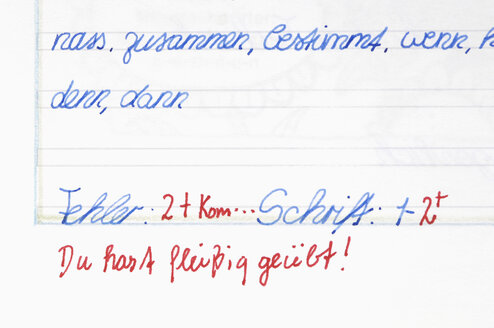 nass, zusammen, bestimmt, wenn,
denn, dann
Fehler: 2 + Kom... Schrift: 1-2+
Du hast fleißig geübt!